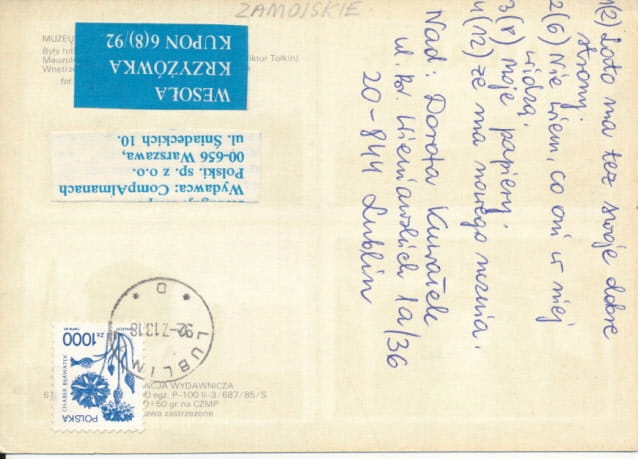 ZAMOJSKIE
MUZEU
Były hit
Mauzol
Wnętrze
fot
iktor Tołkin)
WESOŁA
KRZYŻÓWKA
KUPON 6(8)/92
Wydawca: CompAlmanach
Polski. sp. z o.o.
00-656 Warszawa,
ul. Śniadeckich 10.
1(2) Lato ma też swoje dobre
strony.
2(6) Nie wiem, co oni w niej
widzą.
3(8) moje papiery.
4(12) że ma nowego
Nad: Dorota
ul. Br. Wieniawskich 1a/36
20-844 Lublin
LUBLIN
92-7.13.18
D
POLSKA
CHABER BŁAWATEK
ZŁ1000
NCJA WYDAWNICZA
00 egz. P-100 II-3/687/85/S
0÷50 gr na CZMP
awa zastrzeżone